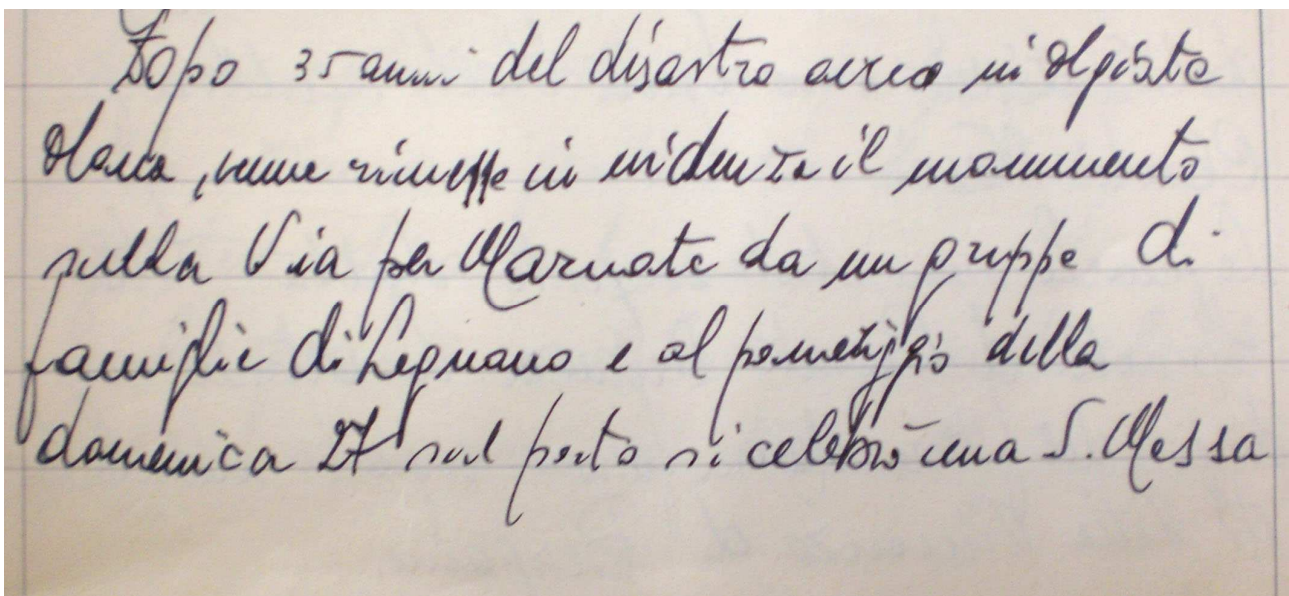 Dopo 35 anni del disastro aereo in Olgiate
Olona, venne rimesso in evidenza il monumento
sulla Via per Marnate da un gruppo di
famiglie di Legnano e al pomeriggio della
domenica 27 sul posto si celebrò una S. Messa